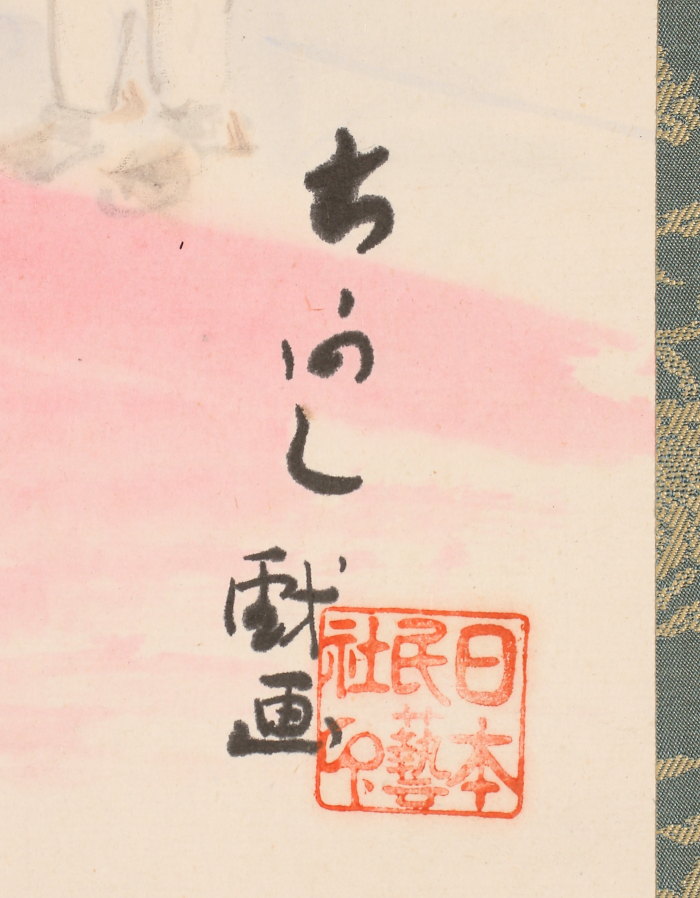 し
戯画
日本
民藝
社印